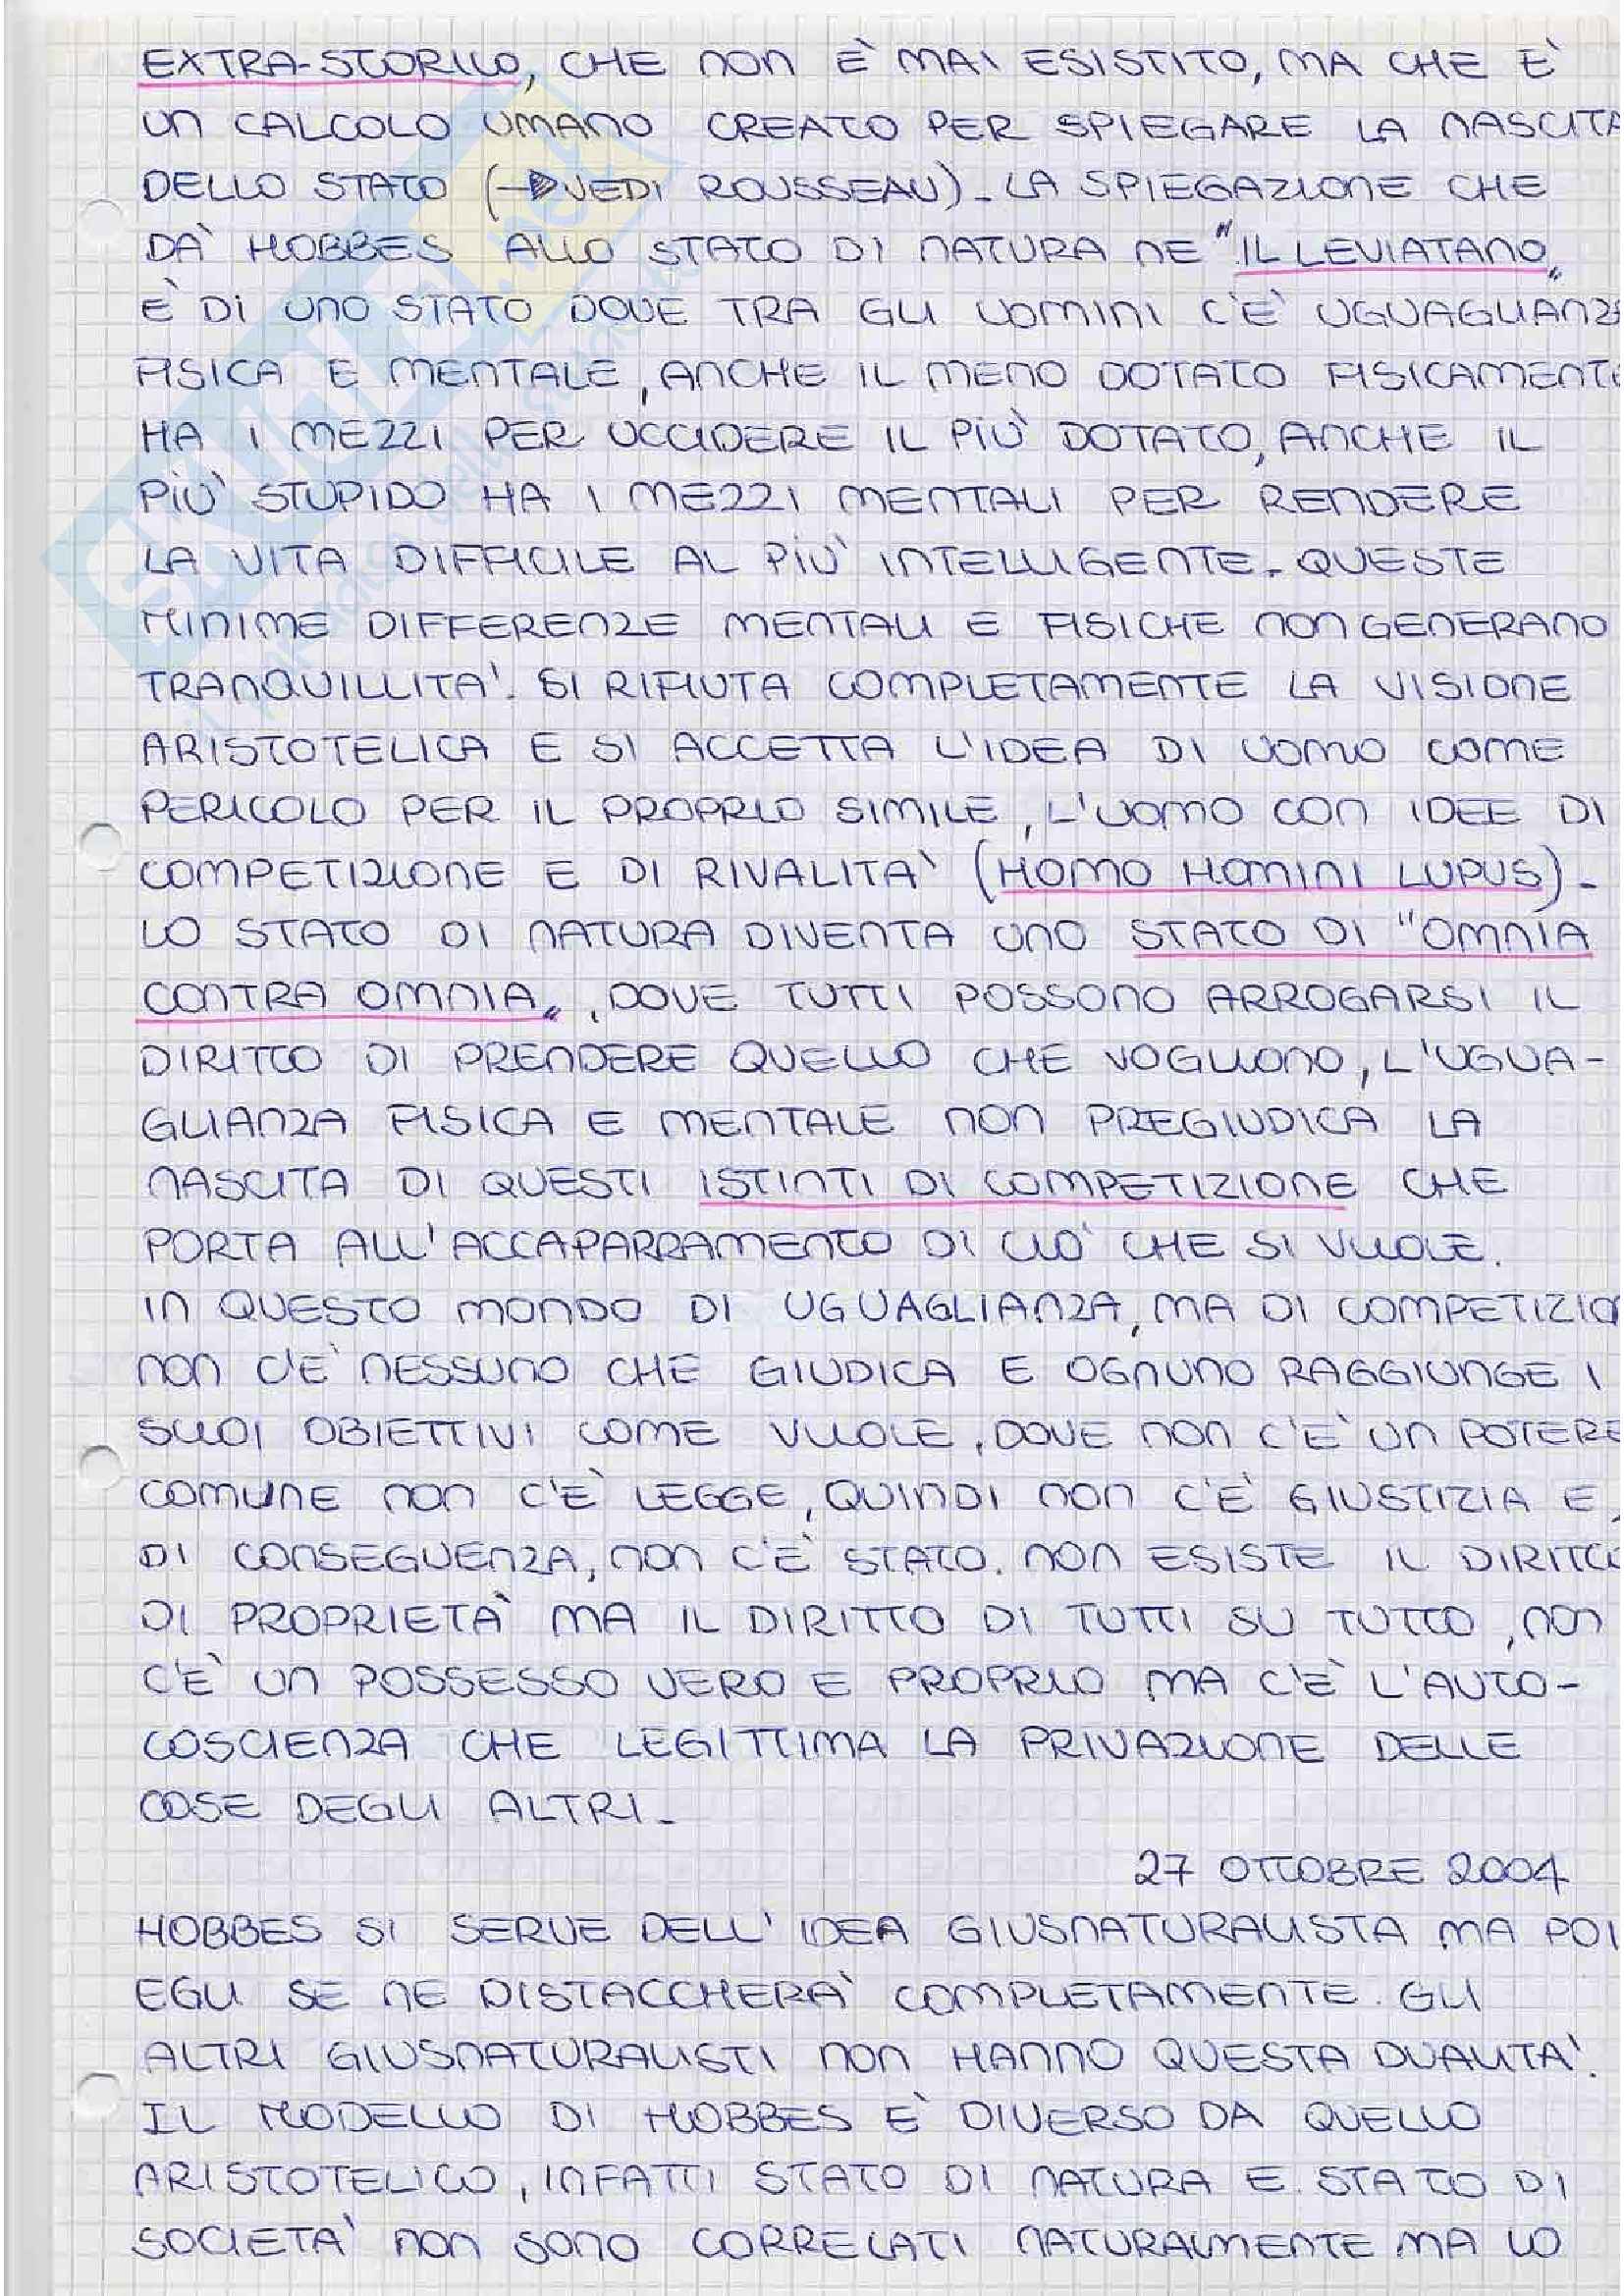 EXTRA-STORICO, CHE NON È MAI ESISTITO, MA CHE È
UN CALCOLO UMANO CREATO PER SPIEGARE LA NASCITA
DELLO STATO (→VEDI ROUSSEAU). LA SPIEGAZIONE CHE
DA' HOBBES ALLO STATO DI NATURA NE "IL LEVIATANO"
E' DI UNO STATO DOVE TRA GLI UOMINI C'E' UGUAGLIANZA
FISICA E MENTALE, ANCHE IL MENO DOTATO FISICAMENTE
HA I MEZZI PER UCCIDERE IL PIU' DOTATO, ANCHE IL
PIU' STUPIDO HA I MEZZI MENTALI PER RENDERE
LA VITA DIFFICILE AL PIU' INTELLIGENTE. QUESTE
MINIME DIFFERENZE MENTALI E FISICHE NON GENERANO
TRANQUILLITA'. SI RIFIUTA COMPLETAMENTE LA VISIONE
ARISTOTELICA E SI ACCETTA L'IDEA DI UOMO COME
PERICOLO PER IL PROPRIO SIMILE, L'UOMO CON IDEE DI
COMPETIZIONE E DI RIVALITA' (HOMO HOMINI LUPUS).
LO STATO DI NATURA DIVENTA UNO STATO DI "OMNIA
CONTRA OMNIA", DOVE TUTTI POSSONO ARROGARSI IL
DIRITTO DI PRENDERE QUELLO CHE VOGLIONO, L'UGUA-
GLIANZA FISICA E MENTALE NON PREGIUDICA LA
NASCITA DI QUESTI ISTINTI DI COMPETIZIONE CHE
PORTA ALL'ACCAPARRAMENTO DI CIO' CHE SI VUOLE.
IN QUESTO MONDO DI UGUAGLIANZA, MA DI COMPETIZIO
NON C'E' NESSUNO CHE GIUDICA E OGNUNO RAGGIUNGE I
SUOI OBIETTIVI COME VUOLE, DOVE NON C'E' UN POTERE
COMUNE NON C'È LEGGE, QUINDI NON C'È GIUSTIZIA E,
DI CONSEGUENZA, NON C'È STATO. NON ESISTE IL DIRITTO
DI PROPRIETÀ MA IL DIRITTO DI TUTTI SU TUTTO, NON
C'È UN POSSESSO VERO E PROPRIO MA C'È L'AUTO-
COSCIENZA CHE LEGITTIMA LA PRIVAZIONE DELLE
COSE DEGLI ALTRI.
27 OTTOBRE 2004
HOBBES SI SERVE DELL'IDEA GIUSNATURALISTA MA POI
EGLI SE NE DISTACCHERA' COMPLETAMENTE. GLI
ALTRI GIUSNATURALISTI NON HANNO QUESTA DUALITA'.
IL MODELLO DI HOBBES E' DIVERSO DA QUELLO
ARISTOTELICO, INFATTI STATO DI NATURA E STATO DI
SOCIETA' NON SONO CORRELATI NATURALMENTE MA LO